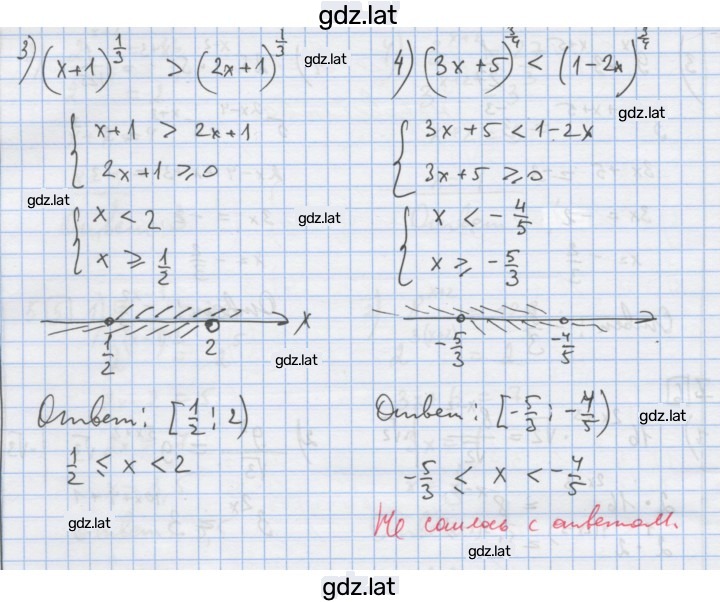 gdz.lat
3) (x+1)^{1/3} > (2x+1)^{1/3}
gdz.lat
{ x+1 > 2x+1
2x+1 ≥ 0
gdz.lat
{ x < 2
x ≥ 1/2
gdz.lat
1/2 2 x
gdz.lat
Ответ: [1/2; 2)
1/2 ≤ x < 2
gdz.lat
4) (3x+5)^{3/4} < (1-2x)^{3/4}
gdz.lat
{ 3x+5 < 1-2x
3x+5 ≥ 0
{ x < -4/5
x ≥ -5/3
-5/3 -4/5
Ответ: [-5/3; -4/5)
gdz.lat
-5/3 ≤ x < -4/5
Не сошлось с ответом.
gdz.lat
gdz.lat